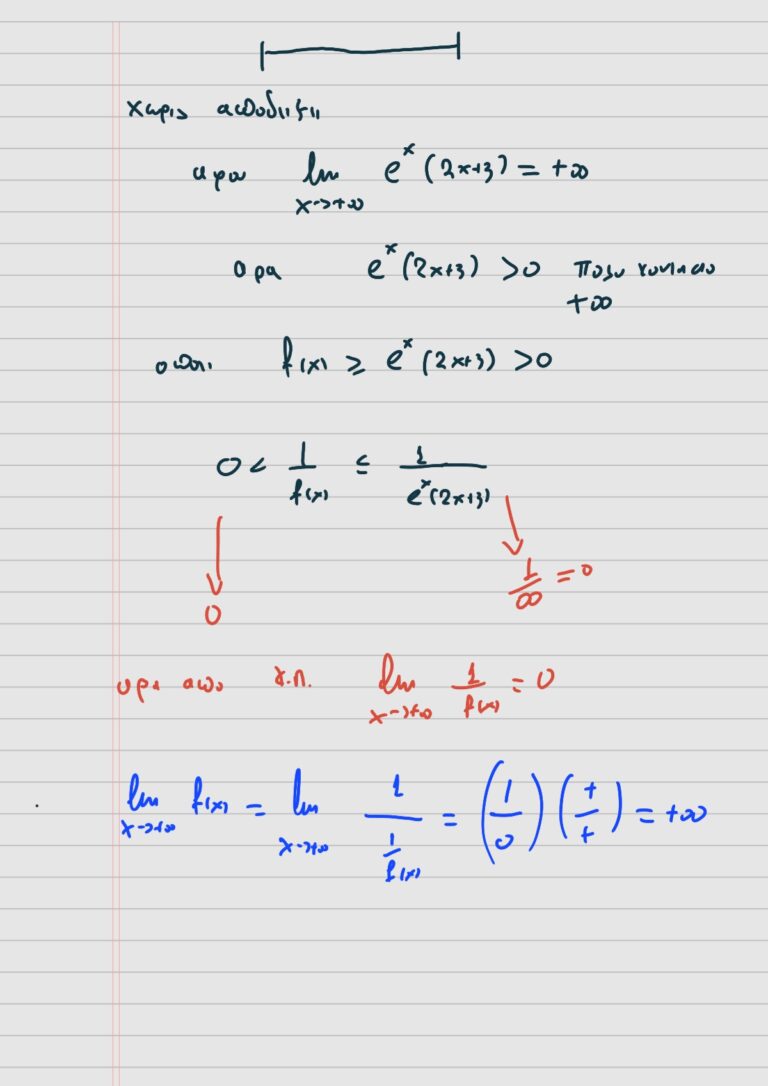 χωρις αποδειξη
αρα lim x->+∞ e^x (2x+3) = +∞
αρα e^x (2x+3) >0 πολυ κοντα στο
+∞
οποτε f(x) ≥ e^x (2x+3) >0
0 < 1/f(x) ≤ 1/(e^x(2x+3))
0
1/∞ = 0
αρα απο κ.π. lim x->+∞ 1/f(x) = 0
lim x->+∞ f(x) = lim x->+∞ 1/(1/f(x)) = (1/0) (+/+) = +∞